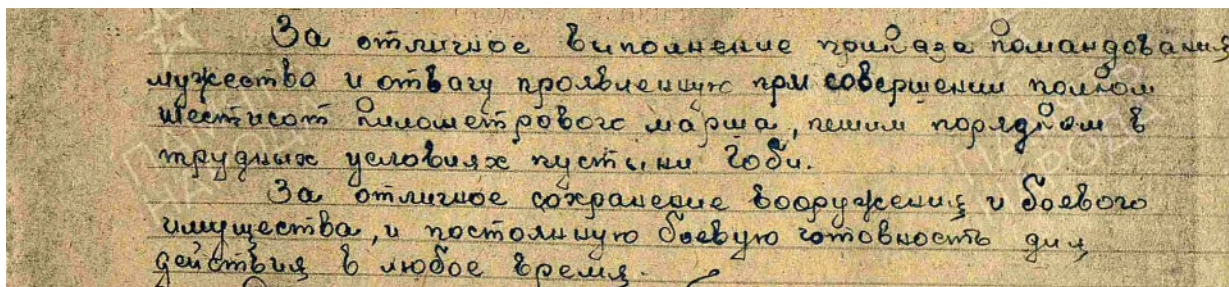 За отличное выполнение приказа командования
мужества и отвагу проявленную при совершении полком
шестисот километрового марша, пешим порядком в
трудных условиях пустыни Гоби.
За отличное сохранение вооружения и боевого
имущества, и постоянную боевую готовность для
действия в любое время.